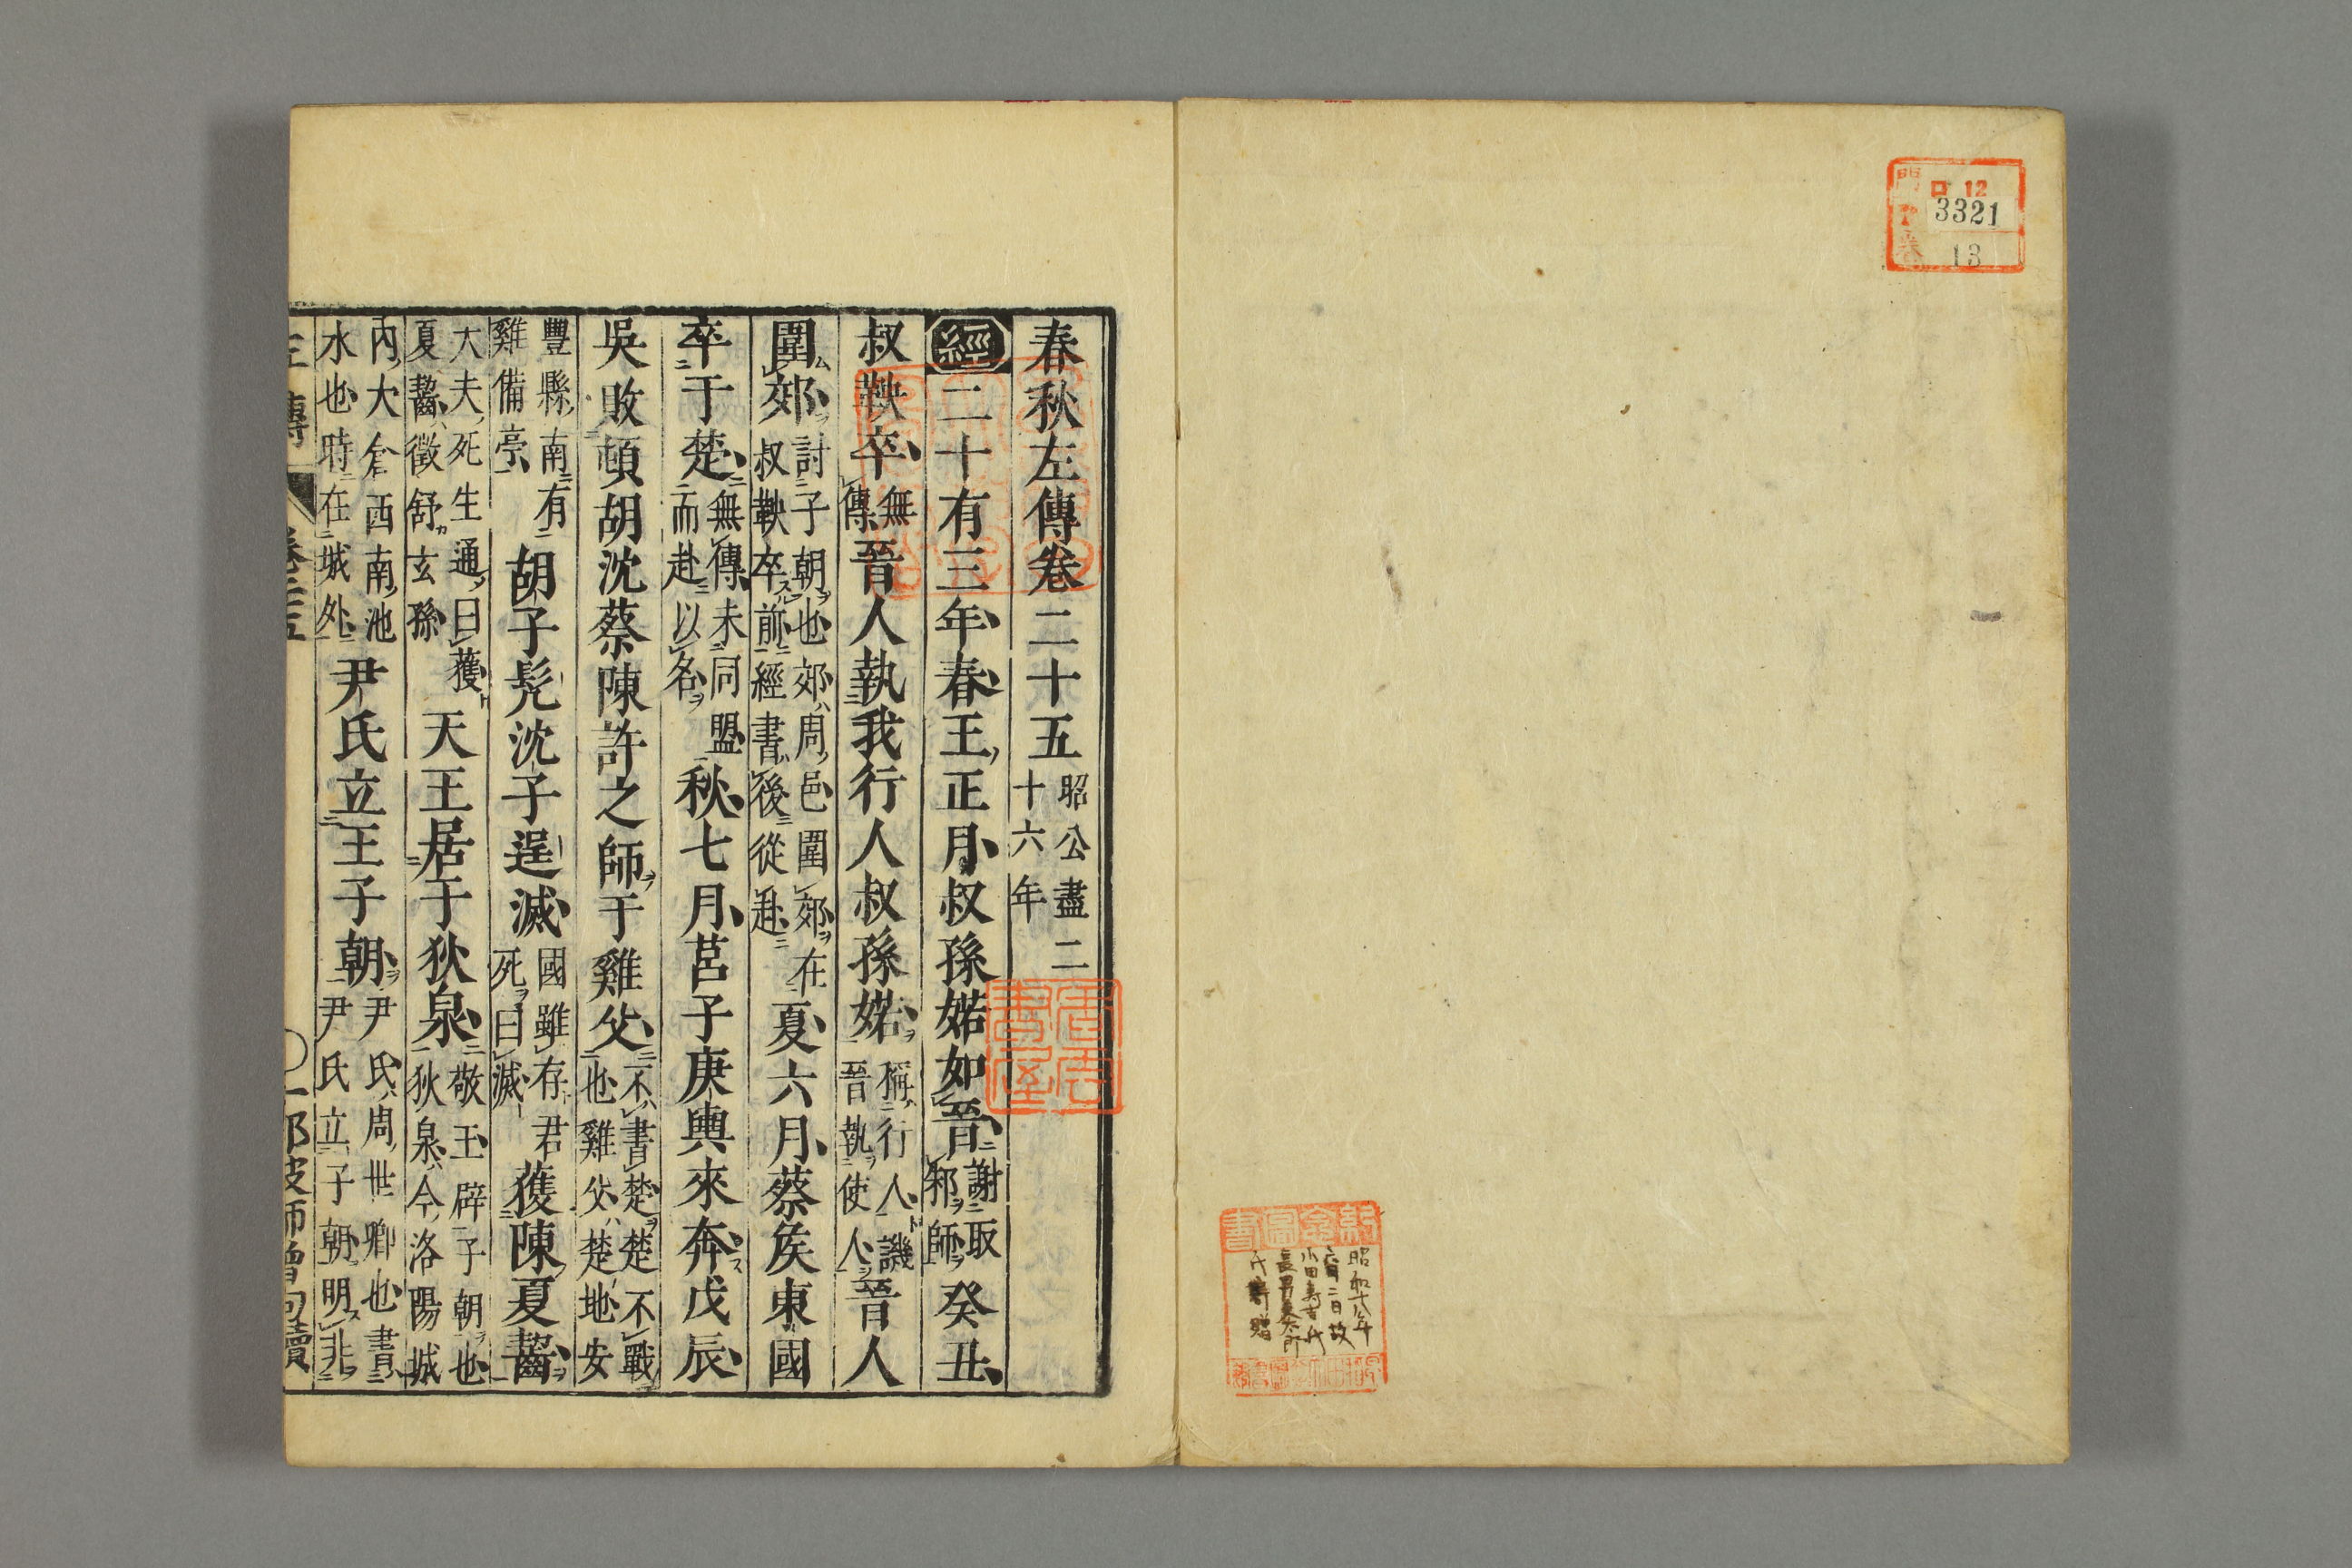 門
ロ 12
3321
13
昭和十八年
六月二日故
小田寿吉氏
長男
氏寄贈
春秋左傳卷二十五 昭公盡二
十六年
經二十有三年春王正月叔孫婼如晉 謝取
邾師 癸丑
叔鞅卒 無
傳 晉人執我行人叔孫婼 稱行人譏
晉執使人 晉人
圍郊 討子朝也郊周邑圍郊在
叔鞅卒前經書後從赴 夏六月蔡矦東國
卒于楚 無傳未同盟
而赴以名 秋七月莒子庚輿來奔戊辰
吳敗頓胡沈蔡陳許之師于雞父 不書楚楚不戰
也雞父楚地安
豐縣南有
雞備亭 胡子髡沈子逞滅 國雖存君
死曰滅 獲陳夏齧
大夫死生通曰獲
夏齧徵舒玄孫 天王居于狄泉 敬王辟子朝也
狄泉今洛陽城
內大倉西南池
水也時在城外 尹氏立王子朝 尹氏周世卿也書
尹氏立子朝明非
左傳 卷二十五 一 那波師曾句讀